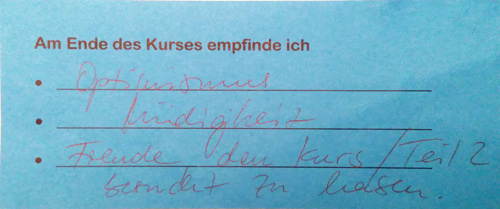 Am Ende des Kurses empfinde ich
• Optimismus
• Müdigkeit
• Freude den Kurs / Teil 2
zu haben.